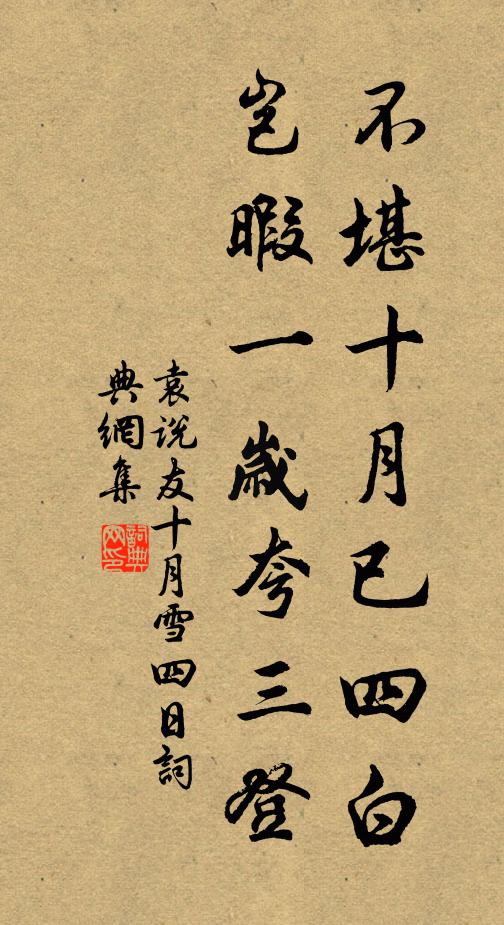 不堪十月已四白
豈暇一歲夸三登
袁説友十月雪四日詞
典網集
詞典
网印